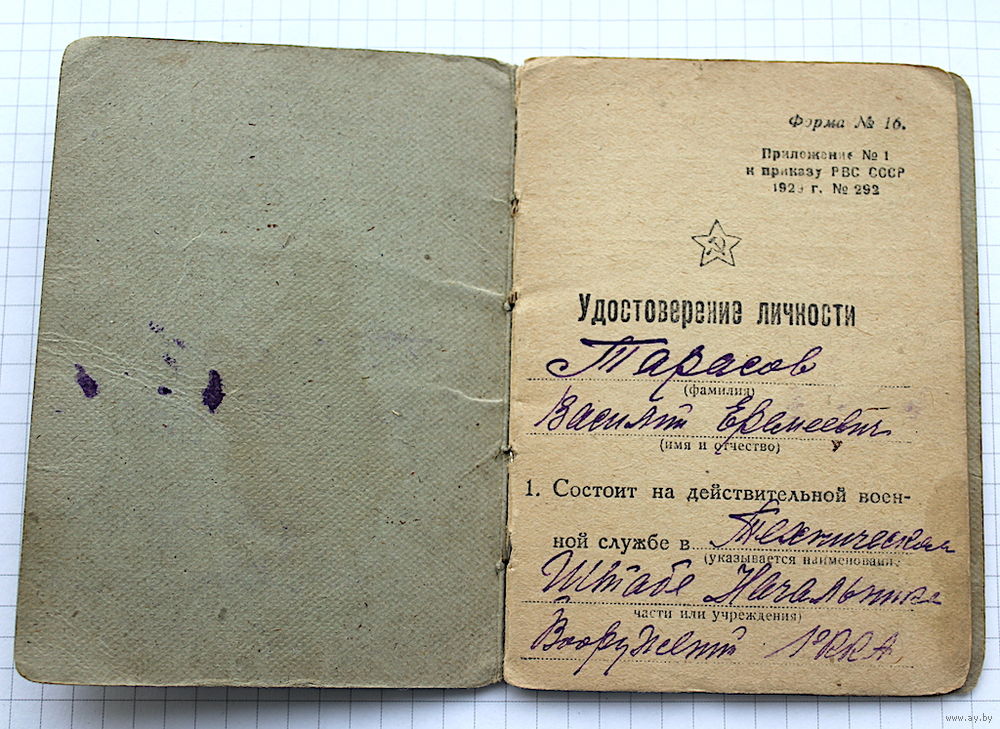 Форма № 16.
Приложение № 1
к приказу РВС СССР
1929 г. № 292
Удостоверение личности
Тарасов
(фамилия)
Василий Еремеевич
(имя и отчество)
1. Состоит на действительной воен-
ной службе в Техническом
(указывается наименование
Штабе Начальника
части или учреждения)
Вооружений РККА
www.ay.by